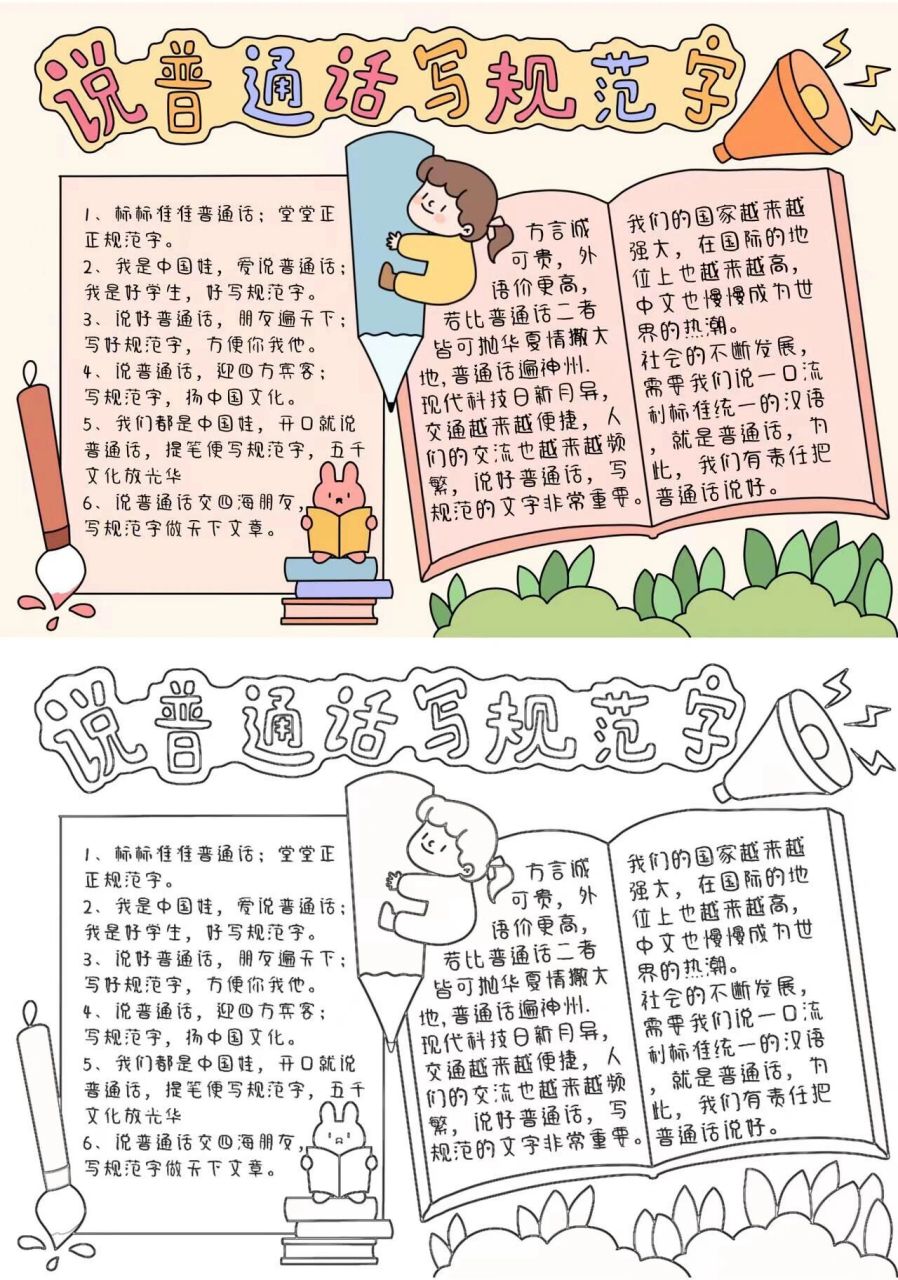 说普通话写规范字
1、标标准准普通话；堂堂正
正规范字。
2、我是中国娃，爱说普通话；
我是好学生，好写规范字。
3、说好普通话，朋友遍天下；
写好规范字，方便你我他。
4、说普通话，迎四方宾客；
写规范字，扬中国文化。
5、我们都是中国娃，开口就说
普通话，提笔便写规范字，五千
文化放光华
6、说普通话交四海朋友，
写规范字做天下文章。
方言诚
可贵，外
语价更高，
若比普通话二者
皆可抛华夏情撒大
地，普通话遍神州.
现代科技日新月异，
交通越来越便捷，人
们的交流也越来越频
繁，说好普通话，写
规范的文字非常重要。
我们的国家越来越
强大，在国际的地
位上也越来越高，
中文也慢慢成为世
界的热潮。
社会的不断发展，
需要我们说一口流
利标准统一的汉语
，就是普通话，为
此，我们有责任把
普通话说好。
说普通话写规范字
1、标标准准普通话；堂堂正
正规范字。
2、我是中国娃，爱说普通话；
我是好学生，好写规范字。
3、说好普通话，朋友遍天下；
写好规范字，方便你我他。
4、说普通话，迎四方宾客；
写规范字，扬中国文化。
5、我们都是中国娃，开口就说
普通话，提笔便写规范字，五千
文化放光华
6、说普通话交四海朋友，
写规范字做天下文章。
方言诚
可贵，外
语价更高，
若比普通话二者
皆可抛华夏情撒大
地，普通话遍神州.
现代科技日新月异，
交通越来越便捷，人
们的交流也越来越频
繁，说好普通话，写
规范的文字非常重要。
我们的国家越来越
强大，在国际的地
位上也越来越高，
中文也慢慢成为世
界的热潮。
社会的不断发展，
需要我们说一口流
利标准统一的汉语
，就是普通话，为
此，我们有责任把
普通话说好。